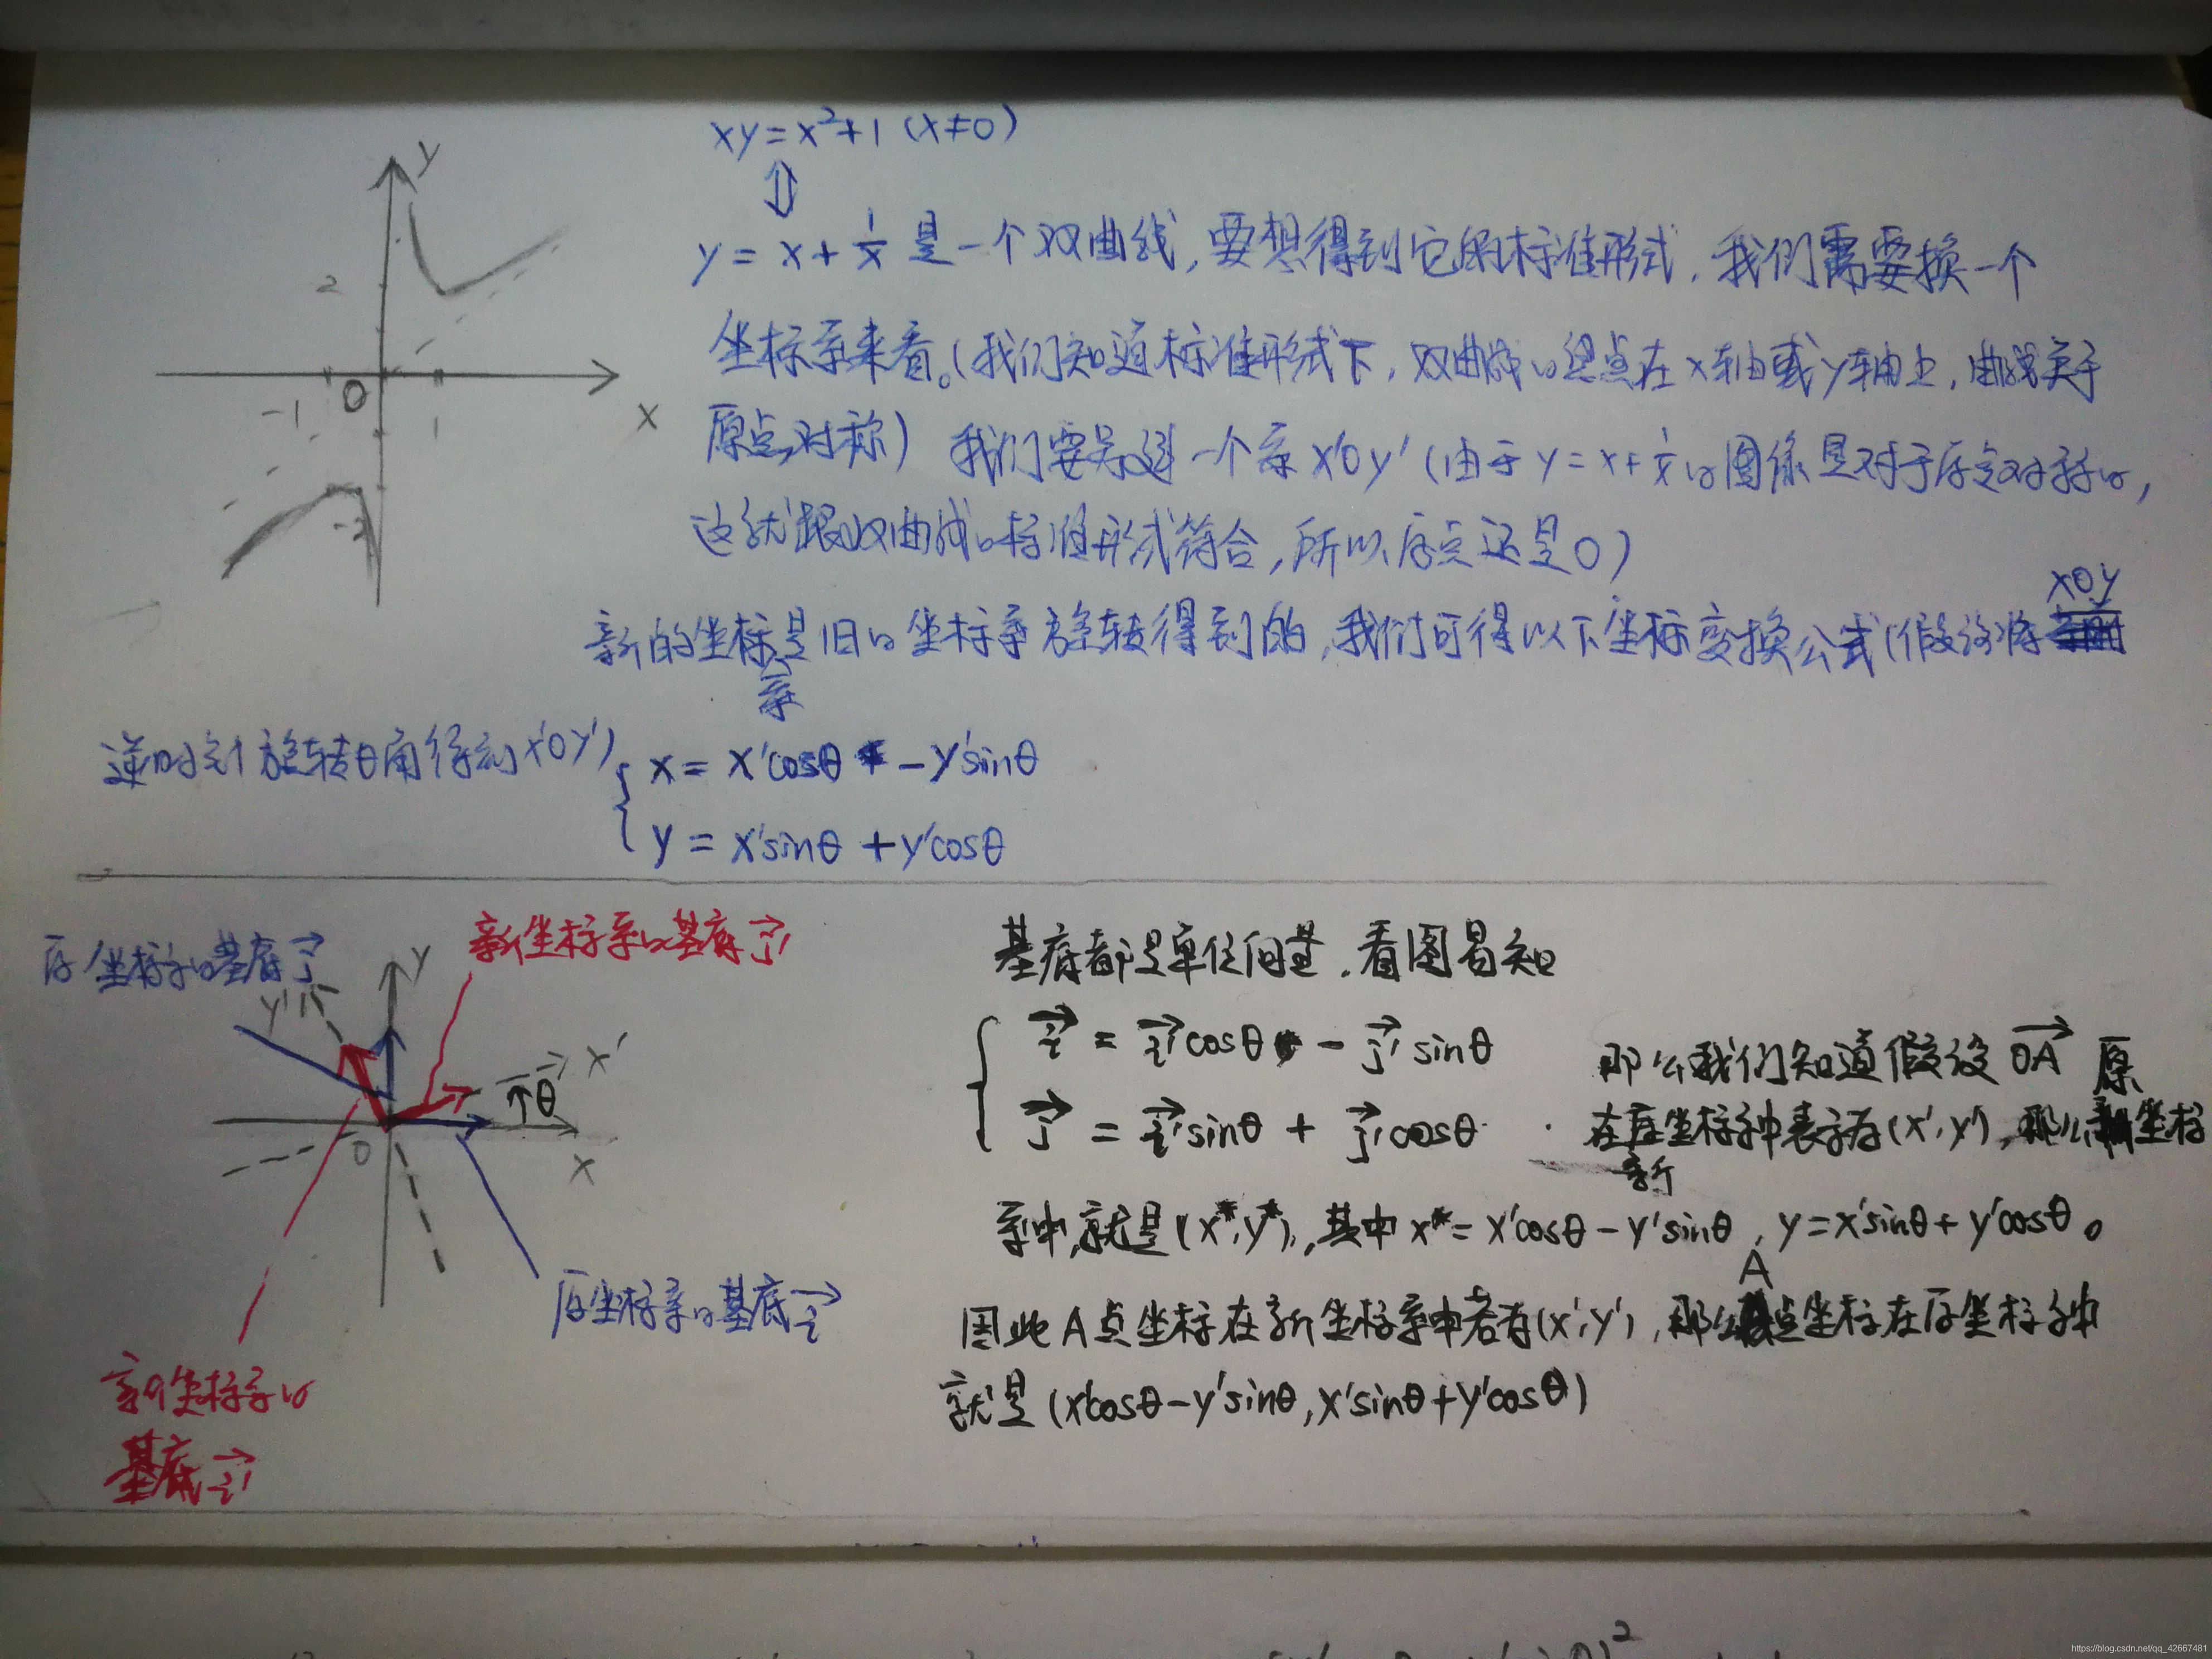 xy=x²+1 (x≠0)
⇕
y = x + 1/x 是一个双曲线,要想得到它的标准形式,我们需要换一个
坐标系来看。(我们知道标准形式下,双曲线的焦点在x轴或y轴上,曲线关于
原点对称) 我们要另建一个系 x'Oy' (由于 y = x + 1/x 的图像是对于原点对称的,
这就跟双曲线的标准形式符合,所以原点还是O)
新的坐标系是旧的坐标系旋转得到的,我们可得以下坐标变换公式(假设将 xOy
逆时针旋转θ角得到x'Oy')
x = x'cosθ - y'sinθ
y = x'sinθ + y'cosθ
y
2
-1
O
1
x
-2
原坐标系的基底 j→
新坐标系的基底 j'→
y
y'
x'
θ
O
x
原坐标系的基底 i→
新坐标系的
基底 i'→
基底都是单位向量,看图易知
i→ = i'→cosθ - j'→sinθ
j→ = i'→sinθ + j'→cosθ
那么我们知道假设 OA→
在新坐标系中表示为(x', y'),那么原坐标
系中,就是(x*, y*),其中 x* = x'cosθ - y'sinθ, y = x'sinθ + y'cosθ。
因此A点坐标在新坐标系中若为(x', y'),那么A点坐标在原坐标系中
就是 (x'cosθ - y'sinθ, x'sinθ + y'cosθ)
https://blog.csdn.net/qq_42667481